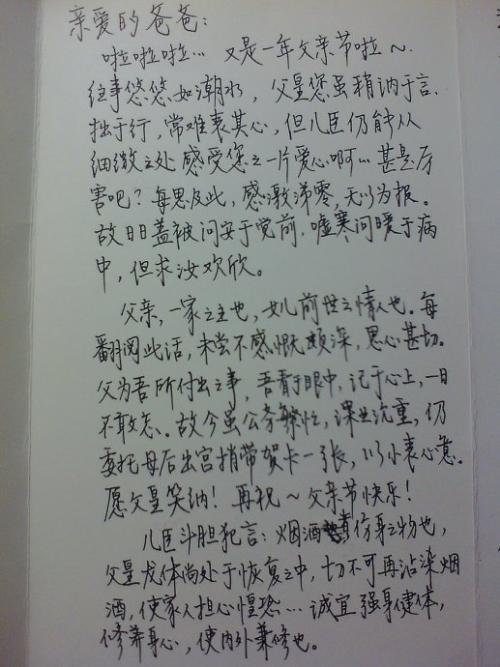 亲爱的爸爸：
啦啦啦啦… 又是一年父亲节啦～
往事悠悠如潮水，父皇您虽稍讷于言、
拙于行，常难表其心，但儿臣仍能从
细微之处感受您之一片爱心啊… 甚是厉
害吧？每思及此，感激涕零，无以为报。
故日日盖被问安于觉前，嘘寒问暖于病
中，但求汝欢欣。
父亲，一家之主也，女儿前世之情人也。每
翻阅此话，未尝不感慨颇深，思心甚切。
父为吾所付出之事，吾看于眼中，记于心上，一日
不敢忘。故今虽公务繁忙，课业沉重，仍
委托母后出宫捎带贺卡一张，以小表心意。
愿父皇笑纳！再祝～父亲节快乐！
儿臣斗胆犯言：烟酒 伤身之物也，
父皇龙体尚处于恢复之中，切不可再沾染烟
酒，使家人担心惶恐… 诚宜强身健体，
修养身心，使内外兼修也。